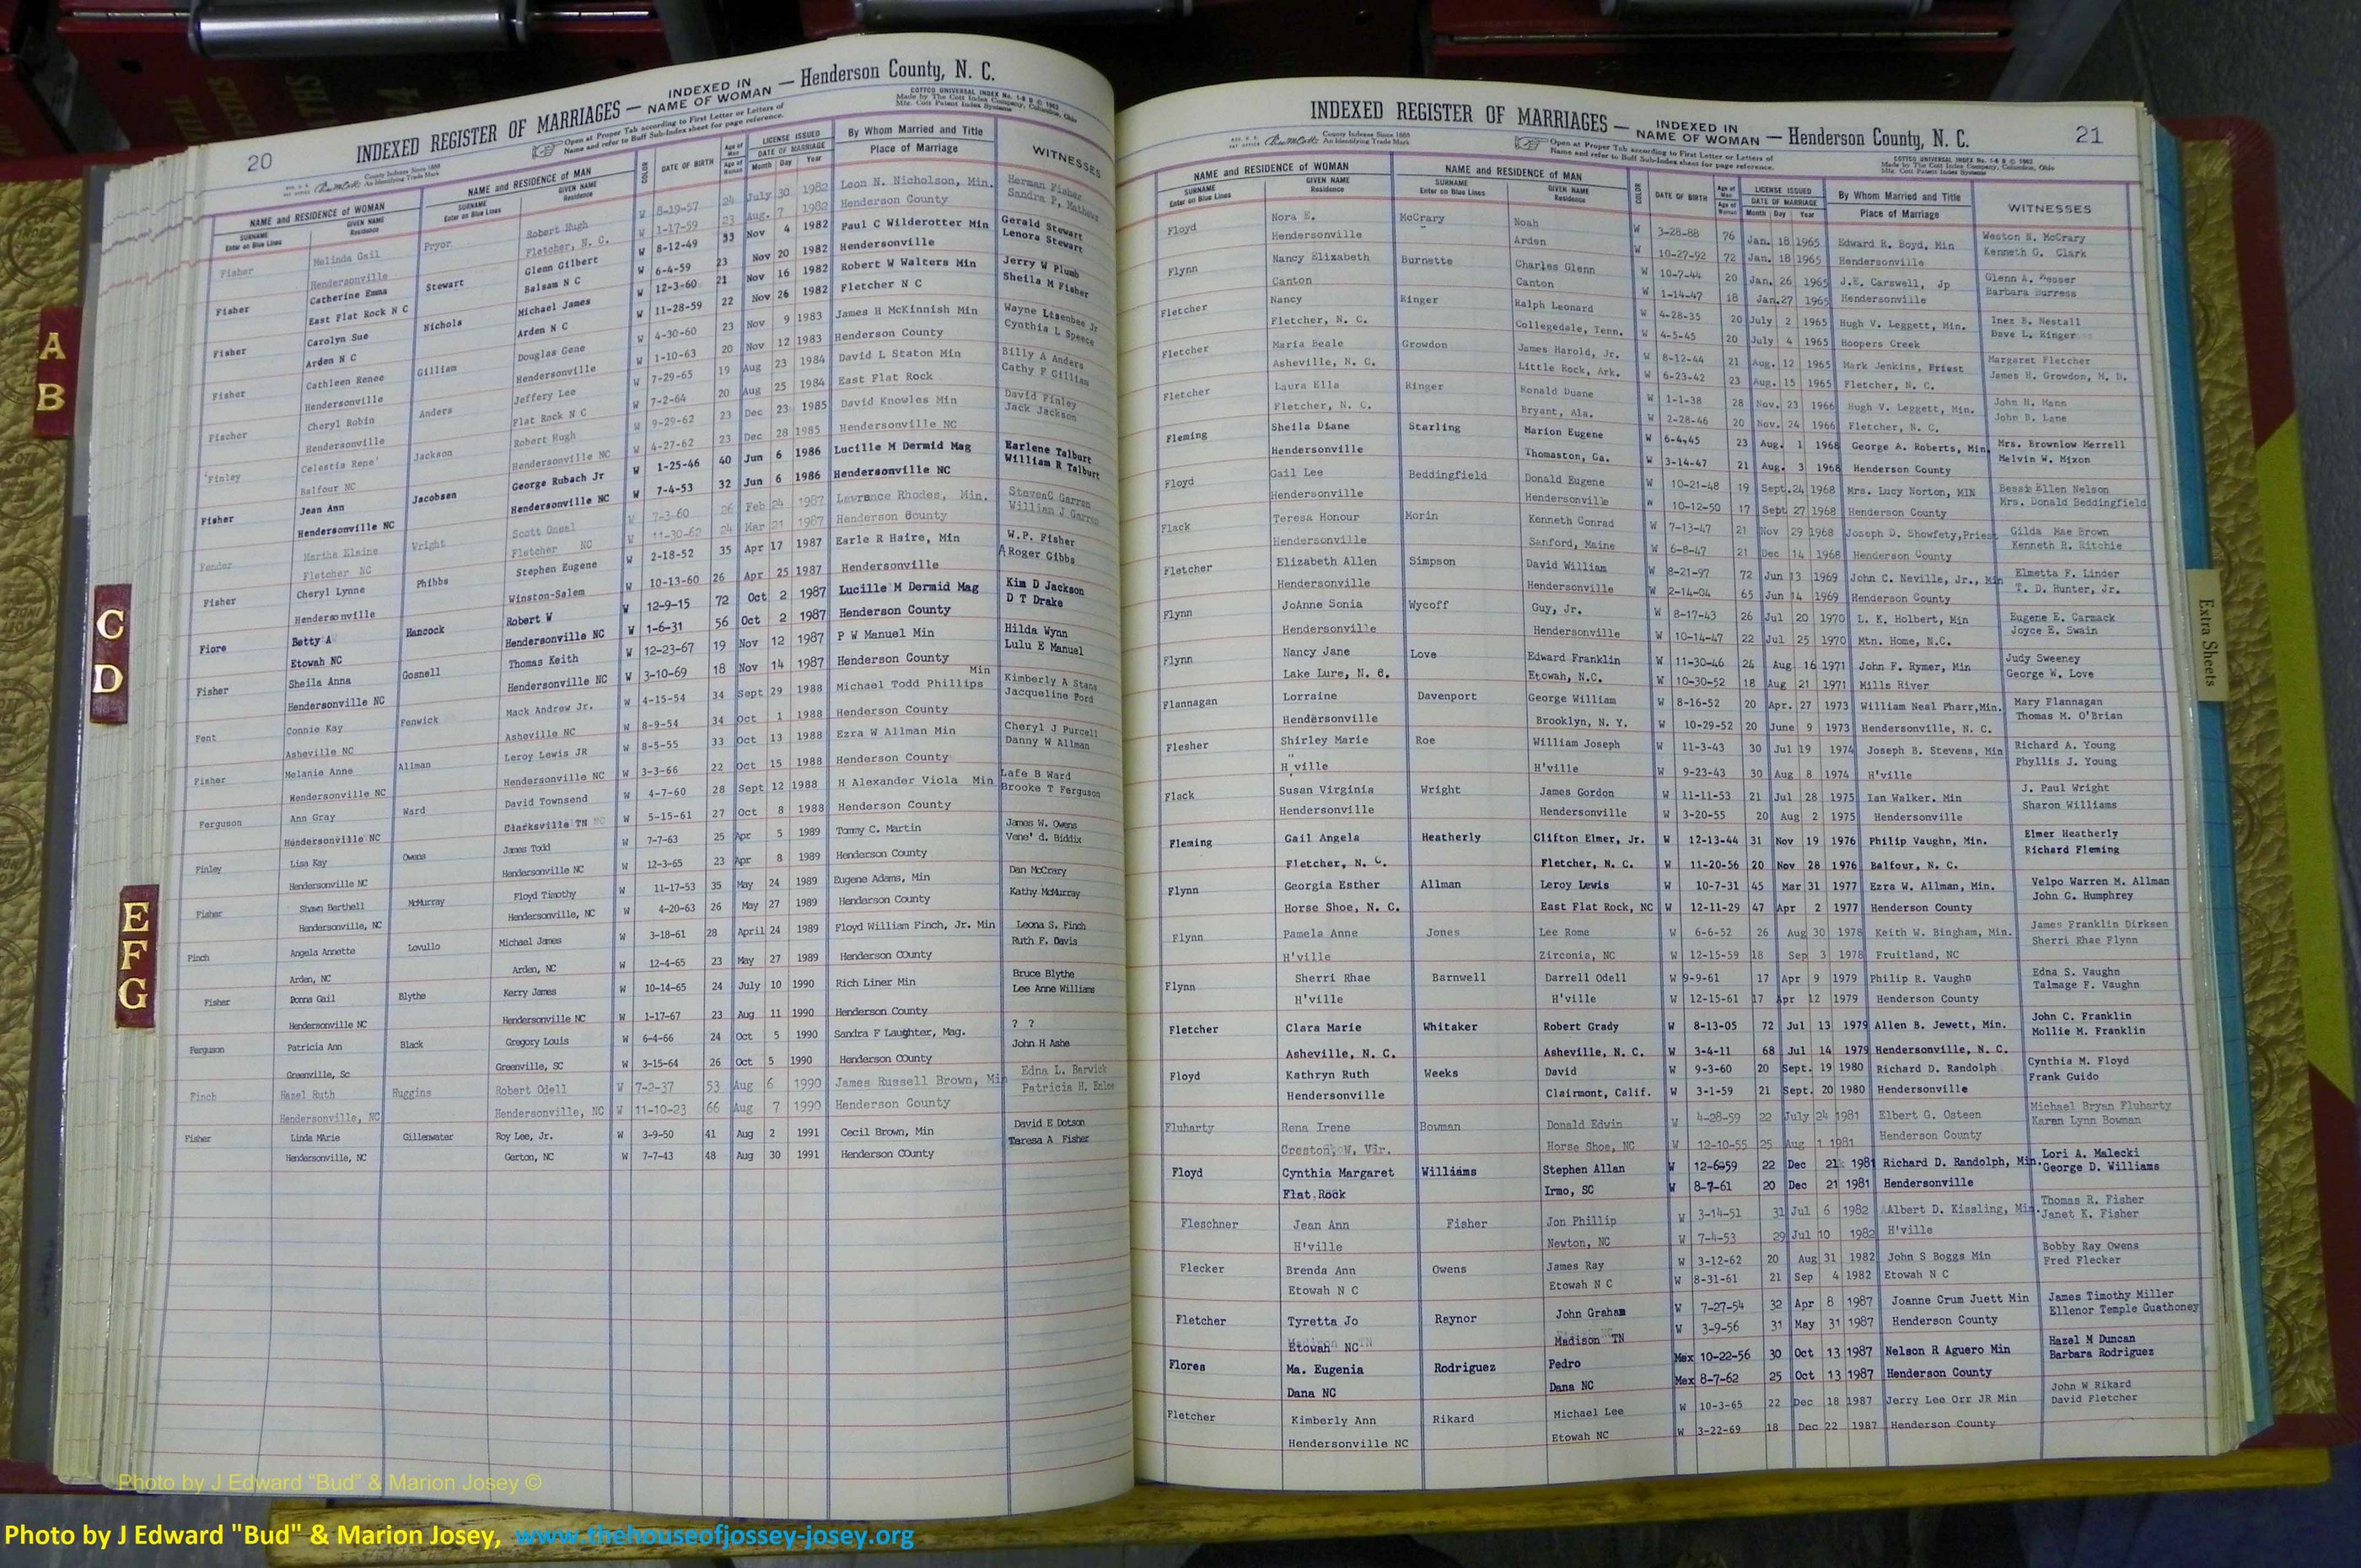 20
INDEXED REGISTER OF MARRIAGES — INDEXED IN NAME OF WOMAN — Henderson County, N. C.
REG. U. S. PAT. OFFICE County Indexes Since 1888 An Identifying Trade Mark
Open at Proper Tab according to First Letter or Letters of Name and refer to Buff Sub-Index sheet for page reference.
COTTCO UNIVERSAL INDEX No. 1-6 B © 1962 Made by The Cott Index Company, Columbus, Ohio Mfg. Cott Patent Index Systems
NAME and RESIDENCE OF WOMAN NAME and RESIDENCE OF MAN COLOR DATE OF BIRTH Age of Man LICENSE ISSUED By Whom Married and Title WITNESSES
SURNAME Enter on Blue Lines GIVEN NAME Residence SURNAME Enter on Blue Lines GIVEN NAME Residence Age of Woman DATE OF MARRIAGE Month Day Year Place of Marriage
Fisher Melinda Gail Pryor Robert Hugh W 8-19-57 24 July 30 1982 Leon N. Nicholson, Min. Herman Fisher
Hendersonville Fletcher, N. C. W 1-17-59 23 Aug. 7 1982 Henderson County Sandra P. Mathews
Fisher Catherine Emma Stewart Glenn Gilbert W 8-12-49 33 Nov 4 1982 Paul C Wilderotter Min Gerald Stewart
East Flat Rock N C Balsam N C W 6-4-59 23 Nov 20 1982 Hendersonville Lenora Stewart
Fisher Carolyn Sue Nichols Michael James W 12-3-60 21 Nov 16 1982 Robert W Walters Min Jerry W Plumb
Arden N C Arden N C W 11-28-59 22 Nov 26 1982 Fletcher N C Sheila M Fisher
Fisher Cathleen Renee Gilliam Douglas Gene W 4-30-60 23 Nov 9 1983 James H McKinnish Min Wayne Lisenbee Jr
Hendersonville Hendersonville W 1-10-63 20 Nov 12 1983 Henderson County Cynthia L Speece
Fischer Cheryl Robin Anders Jeffery Lee W 7-29-65 19 Aug 23 1984 David L Staton Min Billy A Anders
Hendersonville Flat Rock N C W 7-2-64 20 Aug 25 1984 East Flat Rock Cathy F Gilliam
Finley Celestia Rene' Jackson Robert Hugh W 9-29-62 23 Dec 23 1985 David Knowles Min David Finley
Balfour NC Hendersonville NC W 4-27-62 23 Dec 28 1985 Hendersonville NC Jack Jackson
Fisher Jean Ann Jacobsen George Rubach Jr W 1-25-46 40 Jun 6 1986 Lucille M Dermid Mag Earlene Talburt
Hendersonville NC Hendersonville NC W 7-4-53 32 Jun 6 1986 Hendersonville NC William R Talburt
Fender Martha Elaine Wright Scott Oneal W 7-3-60 26 Feb 24 1987 Lawrance Rhodes, Min. StevenC Garren
Fletcher NC Fletcher NC W 11-30-62 24 Mar 21 1987 Henderson County William J Garren
Fisher Cheryl Lynne Phibbs Stephen Eugene W 2-18-52 35 Apr 17 1987 Earle R Haire, Min W.P. Fisher
Hendersonville Winston-Salem W 10-13-60 26 Apr 25 1987 Hendersonville A Roger Gibbs
Fiore Betty A Hancock Robert W W 12-9-15 72 Oct 2 1987 Lucille M Dermid Mag Kim D Jackson
Etowah NC Hendersonville NC W 1-6-31 56 Oct 2 1987 Henderson County D T Drake
Fisher Sheila Anna Gosnell Thomas Keith W 12-23-67 19 Nov 12 1987 P W Manuel Min Hilda Wynn
Hendersonville NC Hendersonville NC W 3-10-69 18 Nov 14 1987 Henderson County Lulu E Manuel
Fent Connie Kay Fenwick Mack Andrew Jr. W 4-15-54 34 Sept 29 1988 Michael Todd Phillips Min Kimberly A Stans
Asheville NC Asheville NC W 8-9-54 34 Oct 1 1988 Henderson County Jacqueline Ford
Fisher Melanie Anne Allman Leroy Lewis JR W 8-5-55 33 Oct 13 1988 Ezra W Allman Min Cheryl J Purcell
Hendersonville NC Hendersonville NC W 3-3-66 22 Oct 15 1988 Henderson County Danny W Allman
Ferguson Ann Gray Ward David Townsend W 4-7-60 28 Sept 12 1988 H Alexander Viola Min Lafe B Ward
Hendersonville NC Clarksville TN W 5-15-61 27 Oct 8 1988 Henderson County Brooke T Ferguson
Finley Lisa Kay Owens James Todd W 7-7-63 25 Apr 5 1989 Tommy C. Martin James W. Owens
Hendersonville NC Hendersonville NC W 12-3-65 23 Apr 8 1989 Henderson County Vene' d. Biddix
Fisher Shawn Berthell McMurray Floyd Timothy W 11-17-53 35 May 24 1989 Eugene Adams, Min Dan McCrary
Hendersonville, NC Hendersonville, NC W 4-20-63 26 May 27 1989 Henderson County Kathy McMurray
Finch Angela Annette Lovullo Michael James W 3-18-61 28 April 24 1989 Floyd William Finch, Jr. Min Leona S. Finch
Arden, NC Arden, NC W 12-4-65 23 May 27 1989 Henderson COunty Ruth F. Davis
Fisher Donna Gail Blythe Kerry James W 10-14-65 24 July 10 1990 Rich Liner Min Bruce Blythe
Hendersonville NC Hendersonville NC W 1-17-67 23 Aug 11 1990 Henderson County Lee Anne Williams
Ferguson Patricia Ann Black Gregory Louis W 6-4-66 24 Oct 5 1990 Sandra F Laughter, Mag. ? ?
Greenville, Sc Greenville, SC W 3-15-64 26 Oct 5 1990 Henderson COunty John H Ashe
Finch Hazel Ruth Huggins Robert Odell W 7-2-37 53 Aug 6 1990 James Russell Brown, Min Edna L. Barwick
Hendersonville, NC Hendersonville, NC W 11-10-23 66 Aug 7 1990 Henderson County Patricia H. Enloe
Fisher Linda MArie Gillenwater Roy Lee, Jr. W 3-9-50 41 Aug 2 1991 Cecil Brown, Min David E Dotson
Hendersonville, NC Gerton, NC W 7-7-43 48 Aug 30 1991 Henderson COunty Teresa A Fisher
21
INDEXED REGISTER OF MARRIAGES — INDEXED IN NAME OF WOMAN — Henderson County, N. C.
REG. U. S. PAT. OFFICE County Indexes Since 1888 An Identifying Trade Mark
Open at Proper Tab according to First Letter or Letters of Name and refer to Buff Sub-Index sheet for page reference.
COTTCO UNIVERSAL INDEX No. 1-6 B © 1962 Made by The Cott Index Company, Columbus, Ohio Mfg. Cott Patent Index Systems
NAME and RESIDENCE OF WOMAN NAME and RESIDENCE OF MAN COLOR DATE OF BIRTH Age of Man LICENSE ISSUED By Whom Married and Title WITNESSES
SURNAME Enter on Blue Lines GIVEN NAME Residence SURNAME Enter on Blue Lines GIVEN NAME Residence Age of Woman DATE OF MARRIAGE Month Day Year Place of Marriage
Floyd Nora E. McCrary Noah W 3-28-88 76 Jan. 18 1965 Edward H. Boyd, Min Weston N. McCrary
Hendersonville Arden W 10-27-92 72 Jan. 18 1965 Hendersonville Kenneth G. Clark
Flynn Nancy Elizabeth Burnette Charles Glenn W 10-7-44 20 Jan. 26 1965 J.E. Carswell, Jp Glenn A. Messer
Canton Canton W 1-14-47 18 Jan.27 1965 Hendersonville Barbara Burress
Fletcher Nancy Ringer Ralph Leonard W 4-28-35 20 July 2 1965 Hugh V. Leggett, Min. Inez B. Nestall
Fletcher, N. C. Collegedale, Tenn. W 4-5-45 20 July 4 1965 Hoopers Creek Dave L. Ringer
Fletcher Maria Beale Growdon James Harold, Jr. W 8-12-44 21 Aug. 12 1965 Mark Jenkins, Priest Margaret Fletcher
Asheville, N. C. Little Rock, Ark. W 6-23-42 23 Aug. 15 1965 Fletcher, N. C. James H. Growdon, M. D.
Fletcher Laura Ella Ringer Ronald Duane W 1-1-38 28 Nov. 23 1966 Hugh V. Leggett, Min. John H. Mann
Fletcher, N. C. Bryant, Ala. W 2-28-46 20 Nov. 24 1966 Fletcher, N. C. John B. Lane
Fleming Sheila Diane Starling Marion Eugene W 6-4-45 23 Aug. 1 1968 George A. Roberts, Min. Mrs. Brownlow Merrell
Hendersonville Thomaston, Ga. W 3-14-47 21 Aug. 3 1968 Henderson County Melvin W. Mixon
Floyd Gail Lee Beddingfield Donald Eugene W 10-21-48 19 Sept.24 1968 Mrs. Lucy Norton, MIN Bessie Ellen Nelson
Hendersonville Hendersonville W 10-12-50 17 Sept 27 1968 Henderson County Mrs. Donald Beddingfield
Flack Teresa Honour Morin Kenneth Conrad W 7-13-47 21 Nov 29 1968 Joseph D. Showfety,Priest Gilda Mae Brown
Hendersonville Sanford, Maine W 6-8-47 21 Dec 14 1968 Henderson County Kenneth R. Ritchie
Fletcher Elizabeth Allen Simpson David William W 8-21-97 72 Jun 13 1969 John C. Neville, Jr., Min Elmetta F. Linder
Hendersonville Hendersonville W 2-14-04 65 Jun 14 1969 Henderson County T. D. Hunter, Jr.
Flynn JoAnne Sonia Wycoff Guy, Jr. W 8-17-43 26 Jul 20 1970 L. K. Holbert, Min Eugene E. Carmack
Hendersonville Hendersonville W 10-14-47 22 Jul 25 1970 Mtn. Home, N.C. Joyce E. Swain
Flynn Nancy Jane Love Edward Franklin W 11-30-46 24 Aug 16 1971 John F. Rymer, Min Judy Sweeney
Lake Lure, N. C. Etowah, N.C. W 10-30-52 18 Aug 21 1971 Mills River George W. Love
Flannagan Lorraine Davenport George William W 8-16-52 20 Apr. 27 1973 William Neal Pharr,Min. Mary Flannagan
Hendersonville Brooklyn, N. Y. W 10-29-52 20 June 9 1973 Hendersonville, N. C. Thomas M. O'Brian
Flesher Shirley Marie Roe William Joseph W 11-3-43 30 Jul 19 1974 Joseph B. Stevens, Min Richard A. Young
H'ville H'ville W 9-23-43 30 Aug 8 1974 H'ville Phyllis J. Young
Flack Susan Virginia Wright James Gordon W 11-11-53 21 Jul 28 1975 Ian Walker. Min J. Paul Wright
Hendersonville Hendersonville W 3-20-55 20 Aug 2 1975 Hendersonville Sharon Williams
Fleming Gail Angela Heatherly Clifton Elmer, Jr. W 12-13-44 31 Nov 19 1976 Philip Vaughn, Min. Elmer Heatherly
Fletcher, N. C. Fletcher, N. C. W 11-20-56 20 Nov 28 1976 Balfour, N. C. Richard Fleming
Flynn Georgia Esther Allman Leroy Lewis W 10-7-31 45 Mar 31 1977 Ezra W. Allman, Min. Velpo Warren M. Allman
Horse Shoe, N. C. East Flat Rock, NC W 12-11-29 47 Apr 2 1977 Henderson County John G. Humphrey
Flynn Pamela Anne Jones Lee Rome W 6-6-52 26 Aug 30 1978 Keith W. Bingham, Min. James Franklin Dirksen
H'ville Zirconia, NC W 12-15-59 18 Sep 3 1978 Fruitland, NC Sherri Rhae Flynn
Flynn Sherri Rhae Barnwell Darrell Odell W 9-9-61 17 Apr 9 1979 Philip R. Vaughn Edna S. Vaughn
H'ville H'ville W 12-15-61 17 Apr 12 1979 Henderson County Talmage F. Vaughn
Fletcher Clara Marie Whitaker Robert Grady W 8-13-05 72 Jul 13 1979 Allen B. Jewett, Min. John C. Franklin
Asheville, N. C. Asheville, N. C. W 3-4-11 68 Jul 14 1979 Hendersonville, N. C. Mollie M. Franklin
Floyd Kathryn Ruth Weeks David W 9-3-60 20 Sept. 19 1980 Richard D. Randolph Cynthia M. Floyd
Hendersonville Clairmont, Calif. W 3-1-59 21 Sept. 20 1980 Hendersonville Frank Guido
Fluharty Rena Irene Bowman Donald Edwin W 4-28-59 22 July 24 1981 Elbert G. Osteen Michael Bryan Fluharty
Creston, W. Vir. Horse Shoe, NC W 12-10-55 25 Aug 1 1981 Henderson County Karen Lynn Bowman
Floyd Cynthia Margaret Williams Stephen Allan W 12-6-59 22 Dec 21 1981 Richard D. Randolph, Min. Lori A. Malecki
Flat Rock Irmo, SC W 8-7-61 20 Dec 21 1981 Hendersonville George D. Williams
Fleschner Jean Ann Fisher Jon Phillip W 3-14-51 31 Jul 6 1982 Albert D. Kissling, Min. Thomas R. Fisher
H'ville Newton, NC W 7-4-53 29 Jul 10 1982 H'ville Janet K. Fisher
Flecker Brenda Ann Owens James Ray W 3-12-62 20 Aug 31 1982 John S Boggs Min Bobby Ray Owens
Etowah N C Etowah N C W 8-31-61 21 Sep 4 1982 Etowah N C Fred Flecker
Fletcher Tyretta Jo Raynor John Graham W 7-27-54 32 Apr 8 1987 Joanne Crum Juett Min James Timothy Miller
Etowah NC Madison TN W 3-9-56 31 May 31 1987 Henderson County Ellenor Temple Guathoney
Flores Ma. Eugenia Rodriguez Pedro Mex 10-22-56 30 Oct 13 1987 Nelson R Aguero Min Hazel M Duncan
Dana NC Dana NC Mex 8-7-62 25 Oct 13 1987 Henderson County Barbara Rodriguez
Fletcher Kimberly Ann Rikard Michael Lee W 10-3-65 22 Dec 18 1987 Jerry Lee Orr JR Min John W Rikard
Hendersonville NC Etowah NC W 3-22-69 18 Dec 22 1987 Henderson County David Fletcher
A
B
C
D
E
F
G
Extra Sheets
Photo by J Edward "Bud" & Marion Josey ©
Photo by J Edward "Bud" & Marion Josey, www.thehouseofjossey-josey.org